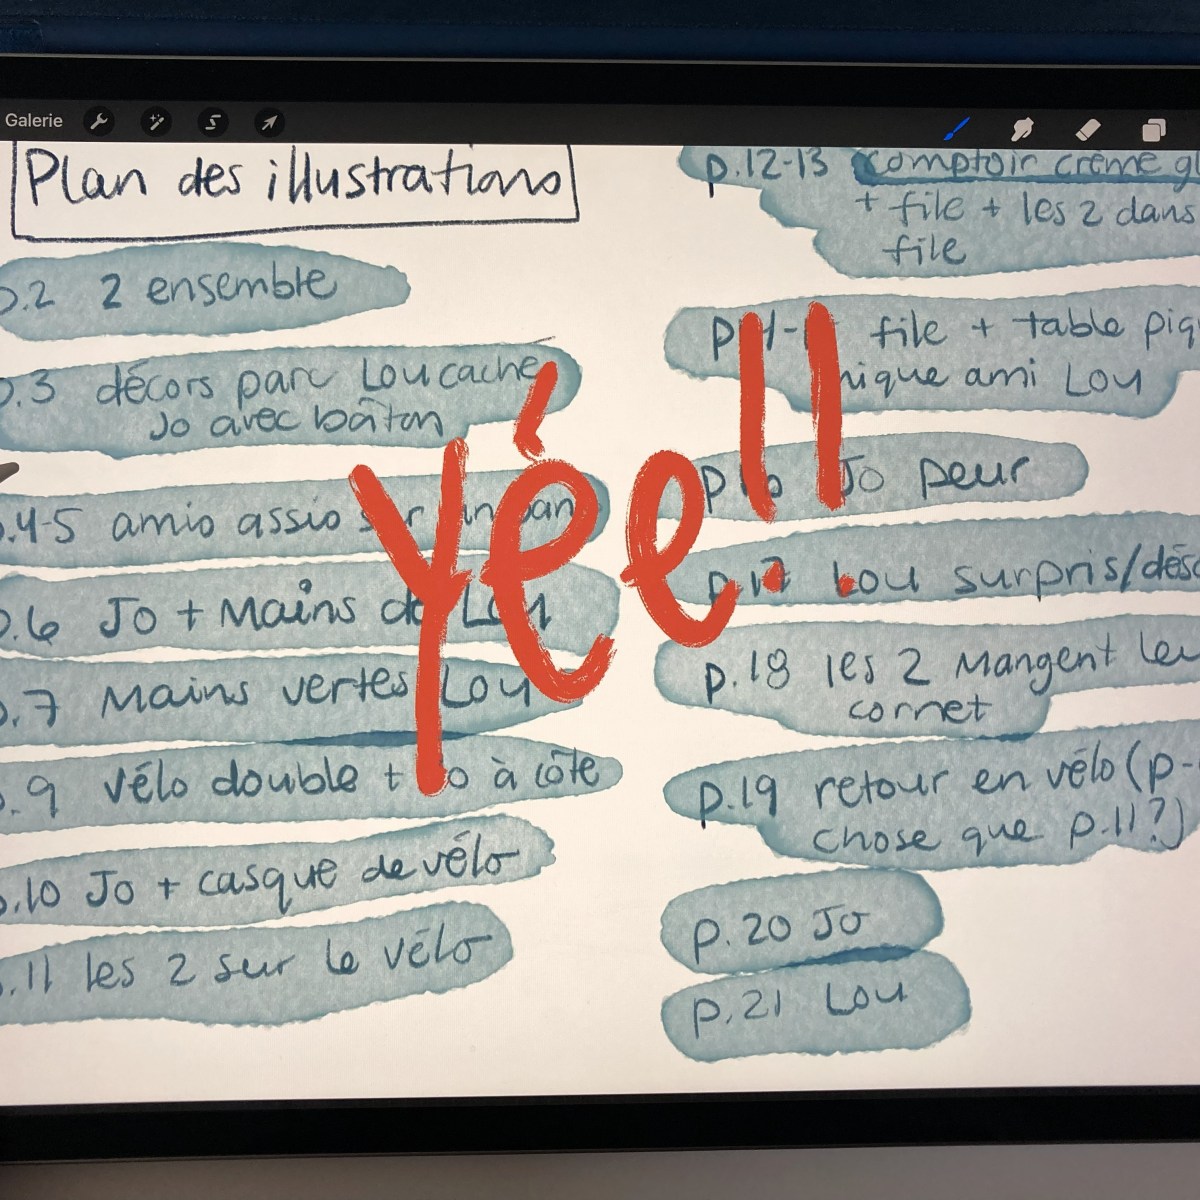 Galerie
Plan des illustrations
p.2 2 ensemble
p.3 décors parc Lou caché
Jo avec bâton
p.4-5 amis assis sur un banc
p.6 Jo + Mains de Lou
p.7 Mains vertes Lou
p.9 vélo double + Jo à côté
p.10 Jo + casque de vélo
p.11 les 2 sur le vélo
p.12-13 comptoir crème
+ file + les 2 dans
file
file + table piq
nique ami Lou
p.16 Jo peur
p.17 Lou surpris/
p.18 les 2 Mangent
cornet
p.19 retour en vélo (p-
chose que p.11?)
p.20 Jo
p.21 Lou
yée!!